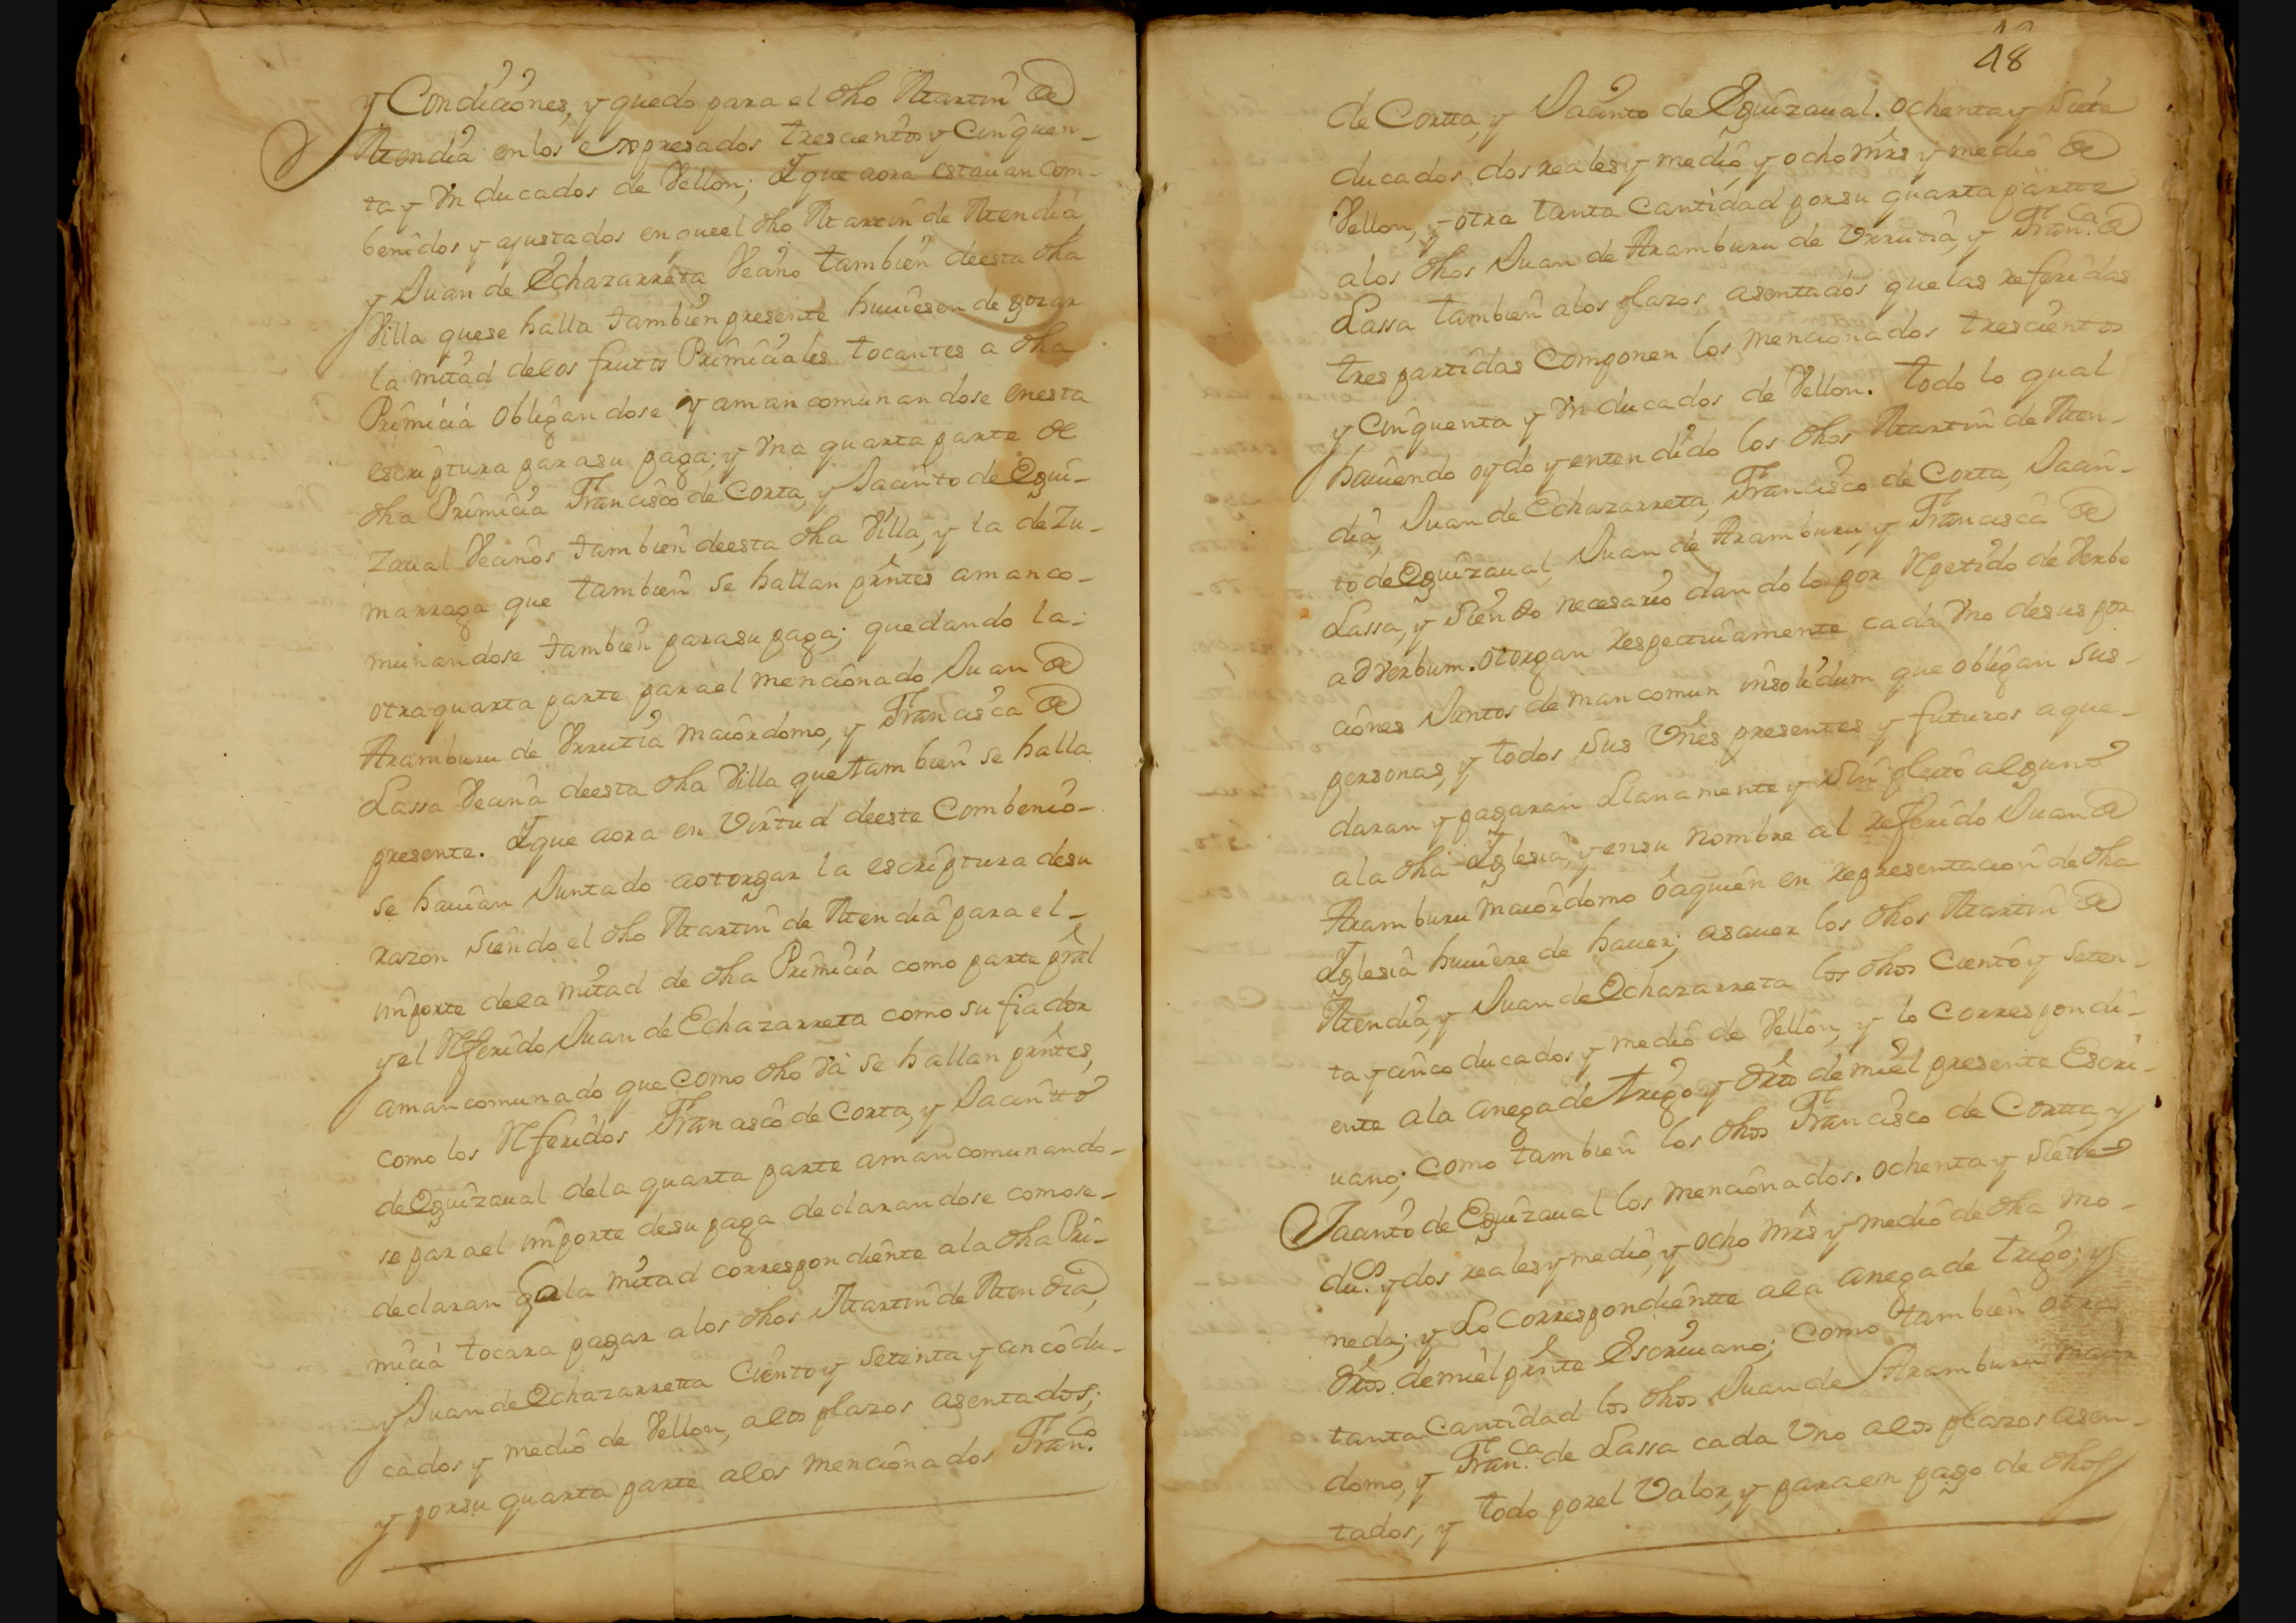 y Condiciones, y quedo para el dho Martin de
Mendia en los expresados trescientos y cinquen-
ta y Vn ducados de Vellon; Y que aora estauan com-
benidos y ajustados en que el dho Martin de Mendia,
y Juan de Echazarreta Veano tambien de esta dha
Villa que se halla tambien presente huuiesen de gozar
la mitad de los frutos Primiciales tocantes a dha
Primicia obligandose y amancomunandose en esta
escriptura para su paga; y Vna quarta parte de
dha Primicia Francisco de Corta, y Jacinto de Eguî-
zaual Veanos tambien de esta dha Villa, y la de Zu-
marraga que tambien se hallan prîntes amanco-
munandose tambien para su paga; quedando la
otra quarta parte para el mencionado Juan de
Aramburu de Vrrutia maiordomo, y Francisca de
Lassa Veana de esta dha Villa que tambien se halla
presente. Y que aora en Virtud de este Combenio
se hauian Juntado a otorgar la escriptura de su
razon siendo el dho Martin de Mendia para el
importe de la mitad de dha Primicia como parte prâl
y el Referido Juan de Echazarreta como su fiador
amancomunado que como dho vâ se hallan prîntes,
como los Referidos Francisco de Corta, y Jacintto
de Eguizaual de la quarta parte amancomunando-
se para el importe de su paga declarandose como se
declaran q a la mitad correspondiente a la dha Pri-
micia tocara pagar a los dhos Martin de Mendia,
y Juan de Echazarretta Ciento y setenta y cinco du-
cados y medio de Vellon, a los plazos asentados;
y por su quarta parte a los mencionados Fran.co
48
de Cortta, y Jacinto de Eguizaual. ochenta y siete
ducados dos reales y medio y ocho mrs y medio de
Vellon, y otra tanta Cantidad por su quarta partte
a los dhos Juan de Aramburu de Vrrutia, y Fran.ca de
Lassa tambien a los plazos asentados que las referidas
tres partidas Componen los mencionados trescientos
y cinquenta y Vn ducados de Vellon. todo lo qual
hauiendo oydo y entendido los dhos Martin de Men-
dia, Juan de Echazarretta, Francisco de Corta, Jacin-
to de Eguizaual, Juan de Aramburu, y Francisca de
Lassa, y siendo necesario dandolo por Repetido de Verbo
ad Verbum. otorgan respectiuamente cada Vno de sus por
ciones Juntos de mancomun insolidum que obligan sus
personas, y todos sus Vnês presentes y futuros a que
daran y pagaran Llanamente y sin pleito alguno
a la dha Iglesia, y en su nombre al referido Juan de
Aramburu maiordomo ô a quien en representacion de dha
Iglesia huuiere de hauer; asauer los dhos Martin de
Mendia, y Juan de Echazarreta los dhos Ciento y seten-
ta y cinco ducados y medio de Vellon, y lo Correspondi-
ente a la anega de trigo y dro de miel presente Escri-
uano; Como tambien los dhos Francisco de Cortta, y
Jacinto de Eguizaual los mencionados. ochenta y siete
du.os y dos reales y medio, y ocho mrs y medio de dha mo-
neda; y Lo Correspondientte a la anega de trigo; y
dros. de miel prînte Escriuano; Como tambien otra
tanta Cantidad los dhos Juan de Aramburu maior
domo, y Fran.ca de Lassa cada Vno a los plazos asen-
tados, y todo por el Valor, y para en pago de dhos